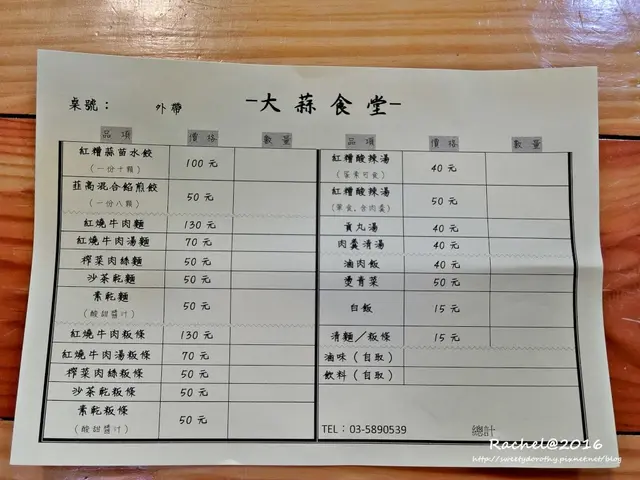 -大蒜食堂-
桌號： 外帶
品項 價格 數量
紅糟蒜苗水餃 100 元
(一份十顆)
韭高混合餡煎餃 50 元
(一份八顆)
紅燒牛肉麵 130 元
紅燒牛肉湯麵 70 元
榨菜肉絲麵 50 元
沙茶乾麵 50 元
素乾麵 50 元
(酸甜醬汁)
紅燒牛肉粄條 130 元
紅燒牛肉湯粄條 70 元
榨菜肉絲粄條 50 元
沙茶乾粄條 50 元
素乾粄條 50 元
(酸甜醬汁)
品項 價格 數量
紅糟酸辣湯 40 元
(蛋素可食)
紅糟酸辣湯 50 元
(葷食,含肉羹)
貢丸湯 40 元
肉羹清湯 40 元
滷肉飯 40 元
燙青菜 50 元
白飯 15 元
清麵／粄條 15 元
滷味(自取)
飲料(自取)
TEL：03-5890539 總計
Rachel@2016
http://sweetydorothy.pixnet.net/blog